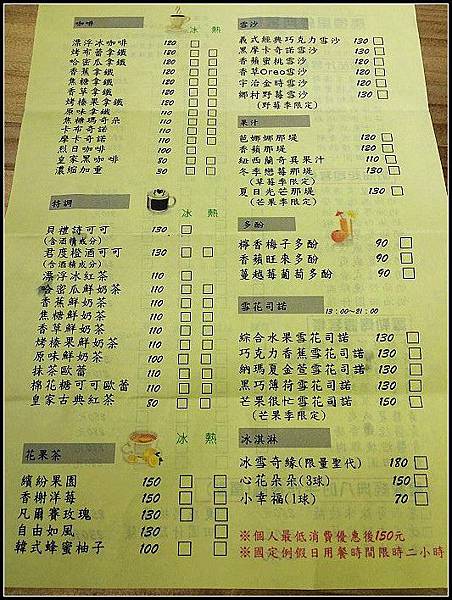 咖啡
冰 熱
漂浮冰咖啡 120
烤布蕾拿鐵 120
哈密瓜拿鐵 120
香蕉拿鐵 120
焦糖拿鐵 120
香草拿鐵 120
烤榛果拿鐵 120
原味拿鐵 110
焦糖瑪奇朵 120
卡布奇諾 110
摩卡奇諾 120
烈日咖啡 100
皇家黑咖啡 80
濃縮加重 30
特調
冰 熱
貝禮詩可可 130
(含酒精成分)
君度橙酒可可 130
(含酒精成分)
漂浮冰紅茶 110
哈密瓜鮮奶茶 110
香蕉鮮奶茶 110
焦糖鮮奶茶 110
香草鮮奶茶 110
烤榛果鮮奶茶 110
原味鮮奶茶 100
抹茶歐蕾 110
棉花糖可可歐蕾 110
皇家古典紅茶 80
花果茶
冰 熱
繽紛果園 150
香榭洋莓 150
凡爾賽玫瑰 130
自由如風 130
韓式蜂蜜柚子 100
雪沙
義式經典巧克力雪沙 130
黑摩卡奇諾雪沙 130
香蘋蜜桃雪沙 130
香草Oreo雪沙 130
宇治金時雪沙 130
鄉村野莓雪沙 130
(野莓季限定)
果汁
芭娜娜那堤 120
香蘋那堤 120
紐西蘭奇異果汁 110
冬季戀莓那堤 130
(草莓季限定)
夏日光芒那堤 130
(芒果季限定)
多酚
檸香梅子多酚 90
香蘋旺來多酚 90
蔓越莓葡萄多酚 90
雪花司諾 13:00~21:00
綜合水果雪花司諾 140
巧克力香蕉雪花司諾 140
納瑪夏金萱雪花司諾 140
黑巧薄荷雪花司諾 140
芒果很忙雪花司諾 150
(芒果季限定)
冰淇淋
冰雪奇緣(限量聖代) 180
心花朵朵(3球) 150
小幸福(1球) 70
※個人最低消費優惠後150元
※國定例假日用餐時間限時二小時